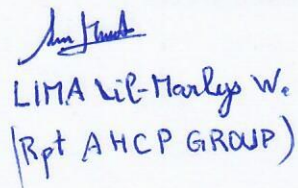 LIMA Lil-Marlys W.
(Rpt AHCP GROUP)